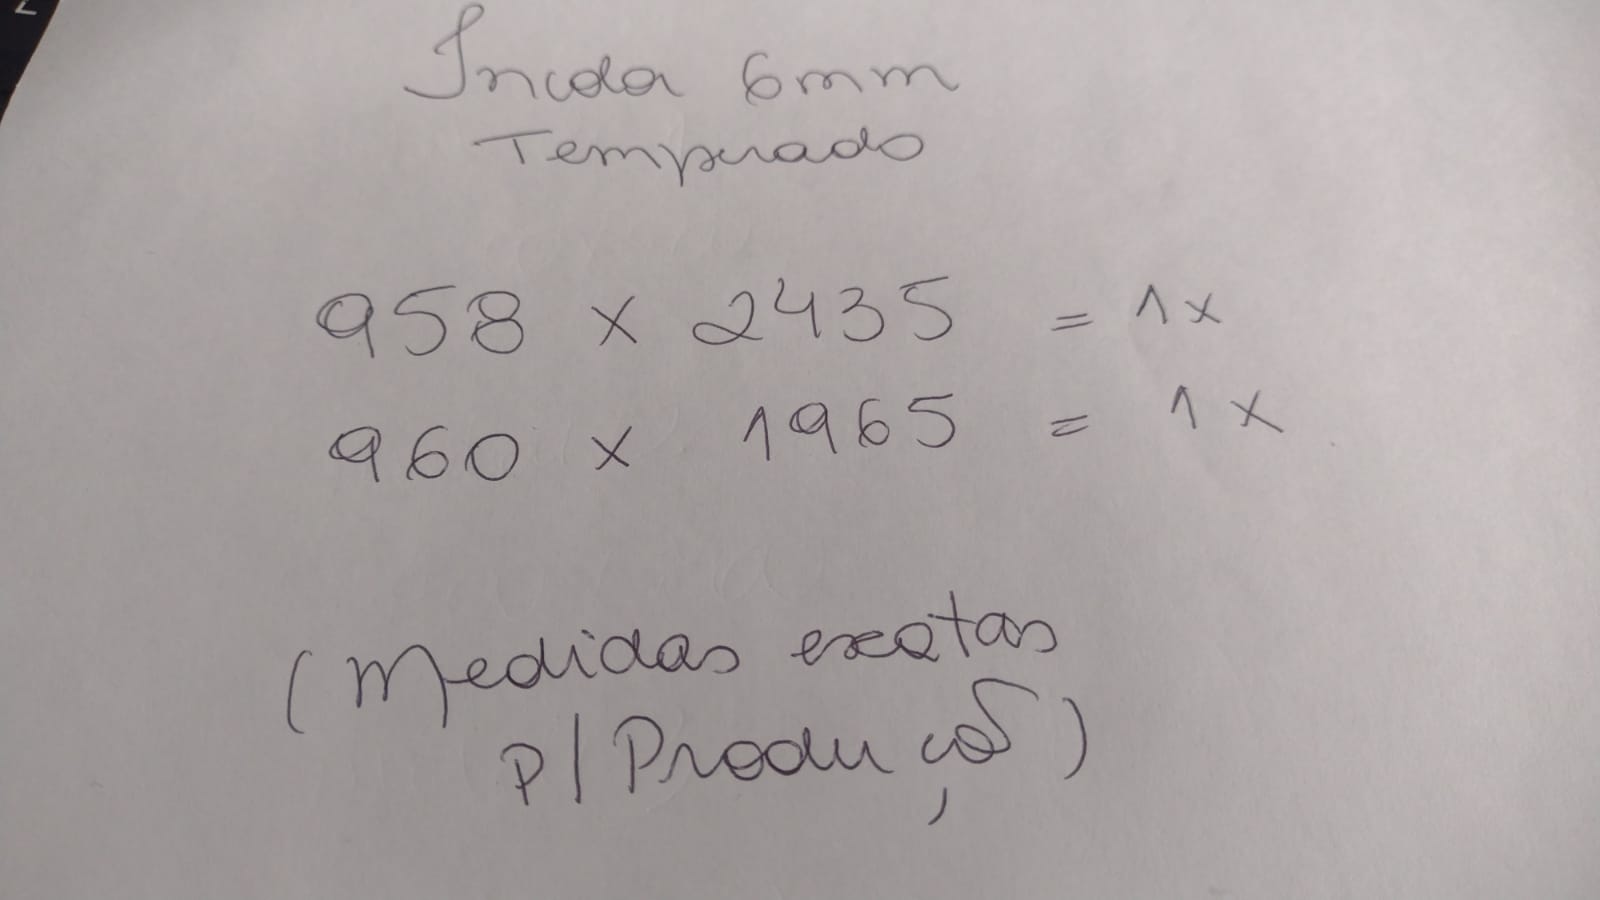 Incolor 6mm
Temperado
958 x 2435 = 1x
960 x 1965 = 1x
(Medidas exatas
P/ Produção)